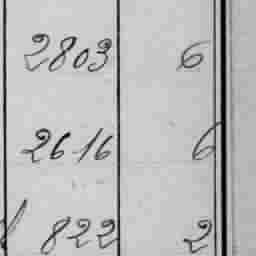 2803 6
2616 6
822 2